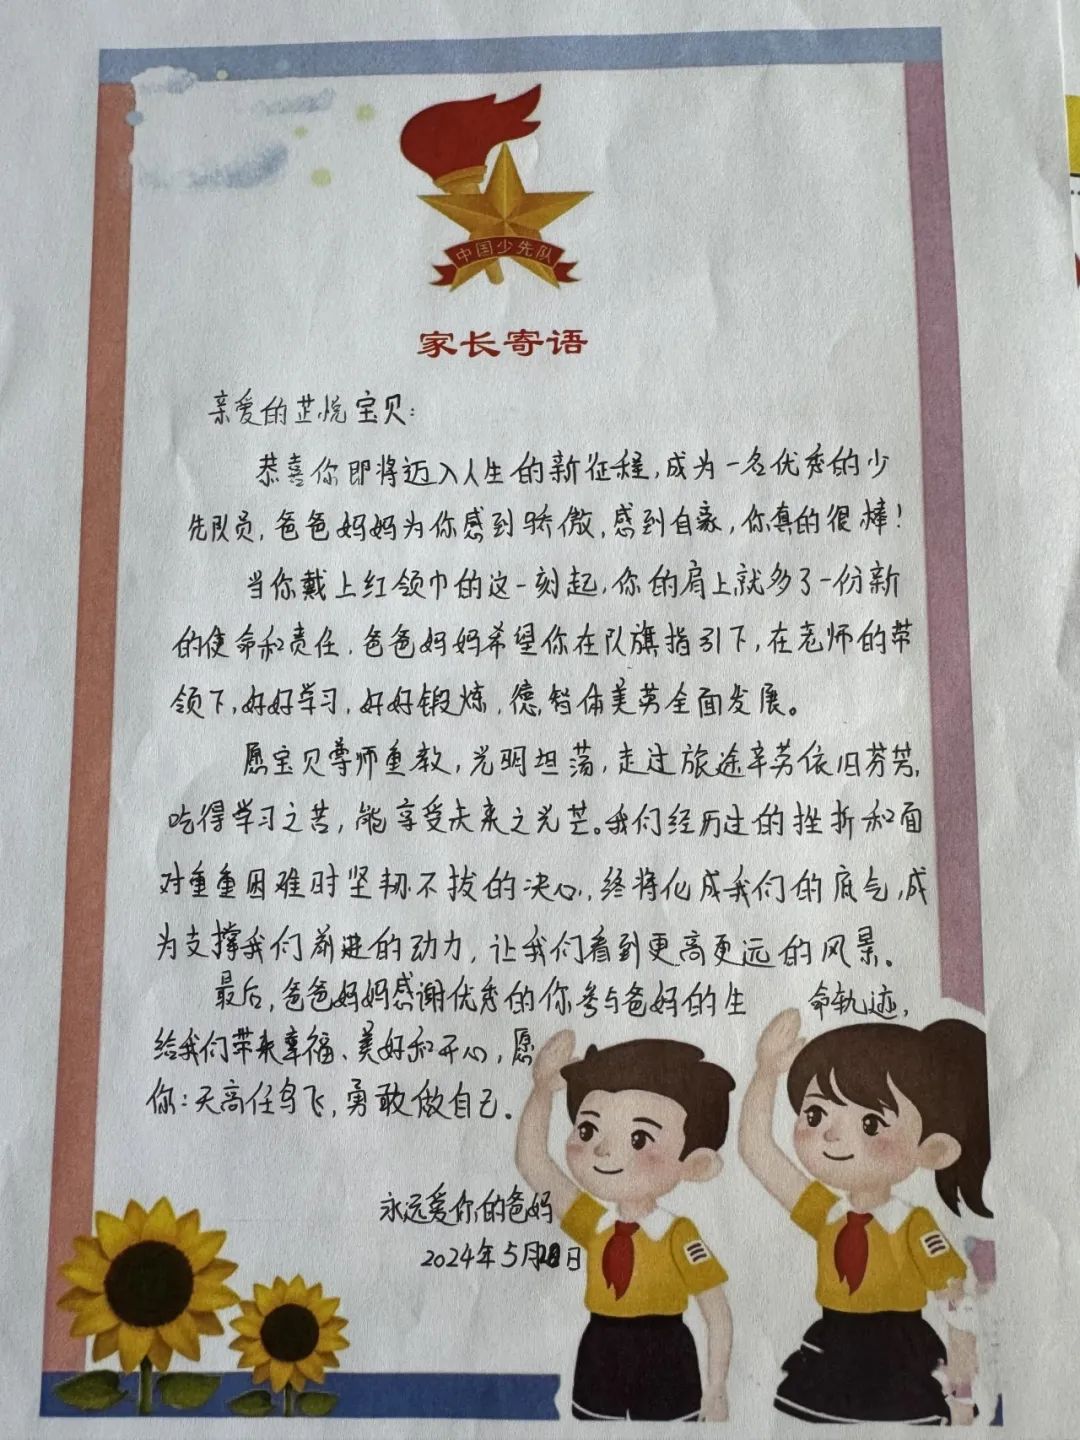 中国少先队
家长寄语
亲爱的芷悦宝贝:
恭喜你即将迈入人生的新征程,成为一名优秀的少
先队员,爸爸妈妈为你感到骄傲,感到自豪,你真的很棒!
当你戴上红领巾的这一刻起,你的肩上就多了一份新
的使命和责任,爸爸妈妈希望你在队旗指引下,在老师的带
领下,好好学习,好好锻炼,德,智体美劳全面发展。
愿宝贝尊师重教,光明坦荡,走过旅途辛劳依旧芬芳,
吃得学习之苦,能享受未来之光芒。我们经历过的挫折和面
对重重困难时坚韧不拔的决心,终将化成我们的底气,成
为支撑我们前进的动力,让我们看到更高更远的风景。
最后,爸爸妈妈感谢优秀的你参与爸妈的生命轨迹,
给我们带来幸福、美好和开心,愿
你:天高任鸟飞,勇敢做自己。
永远爱你的爸妈
2024年5月日